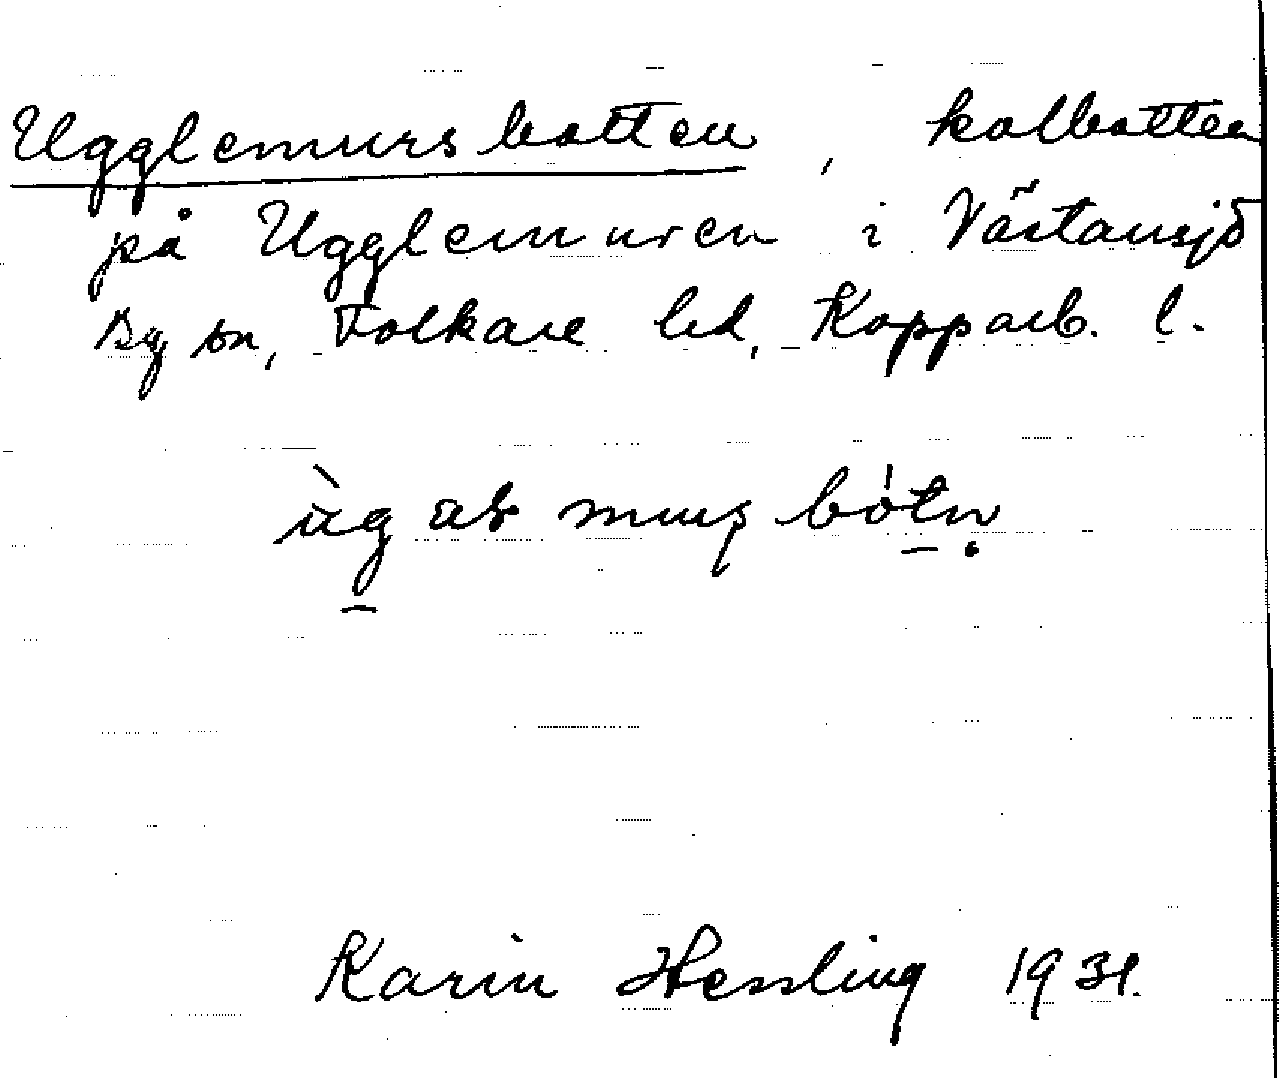 Ugglemursbotten, kolbotten
på Ugglemuren i Västansjö
By sn, Folkare hd, Kopparb. l.
Karin Hessling 1931.